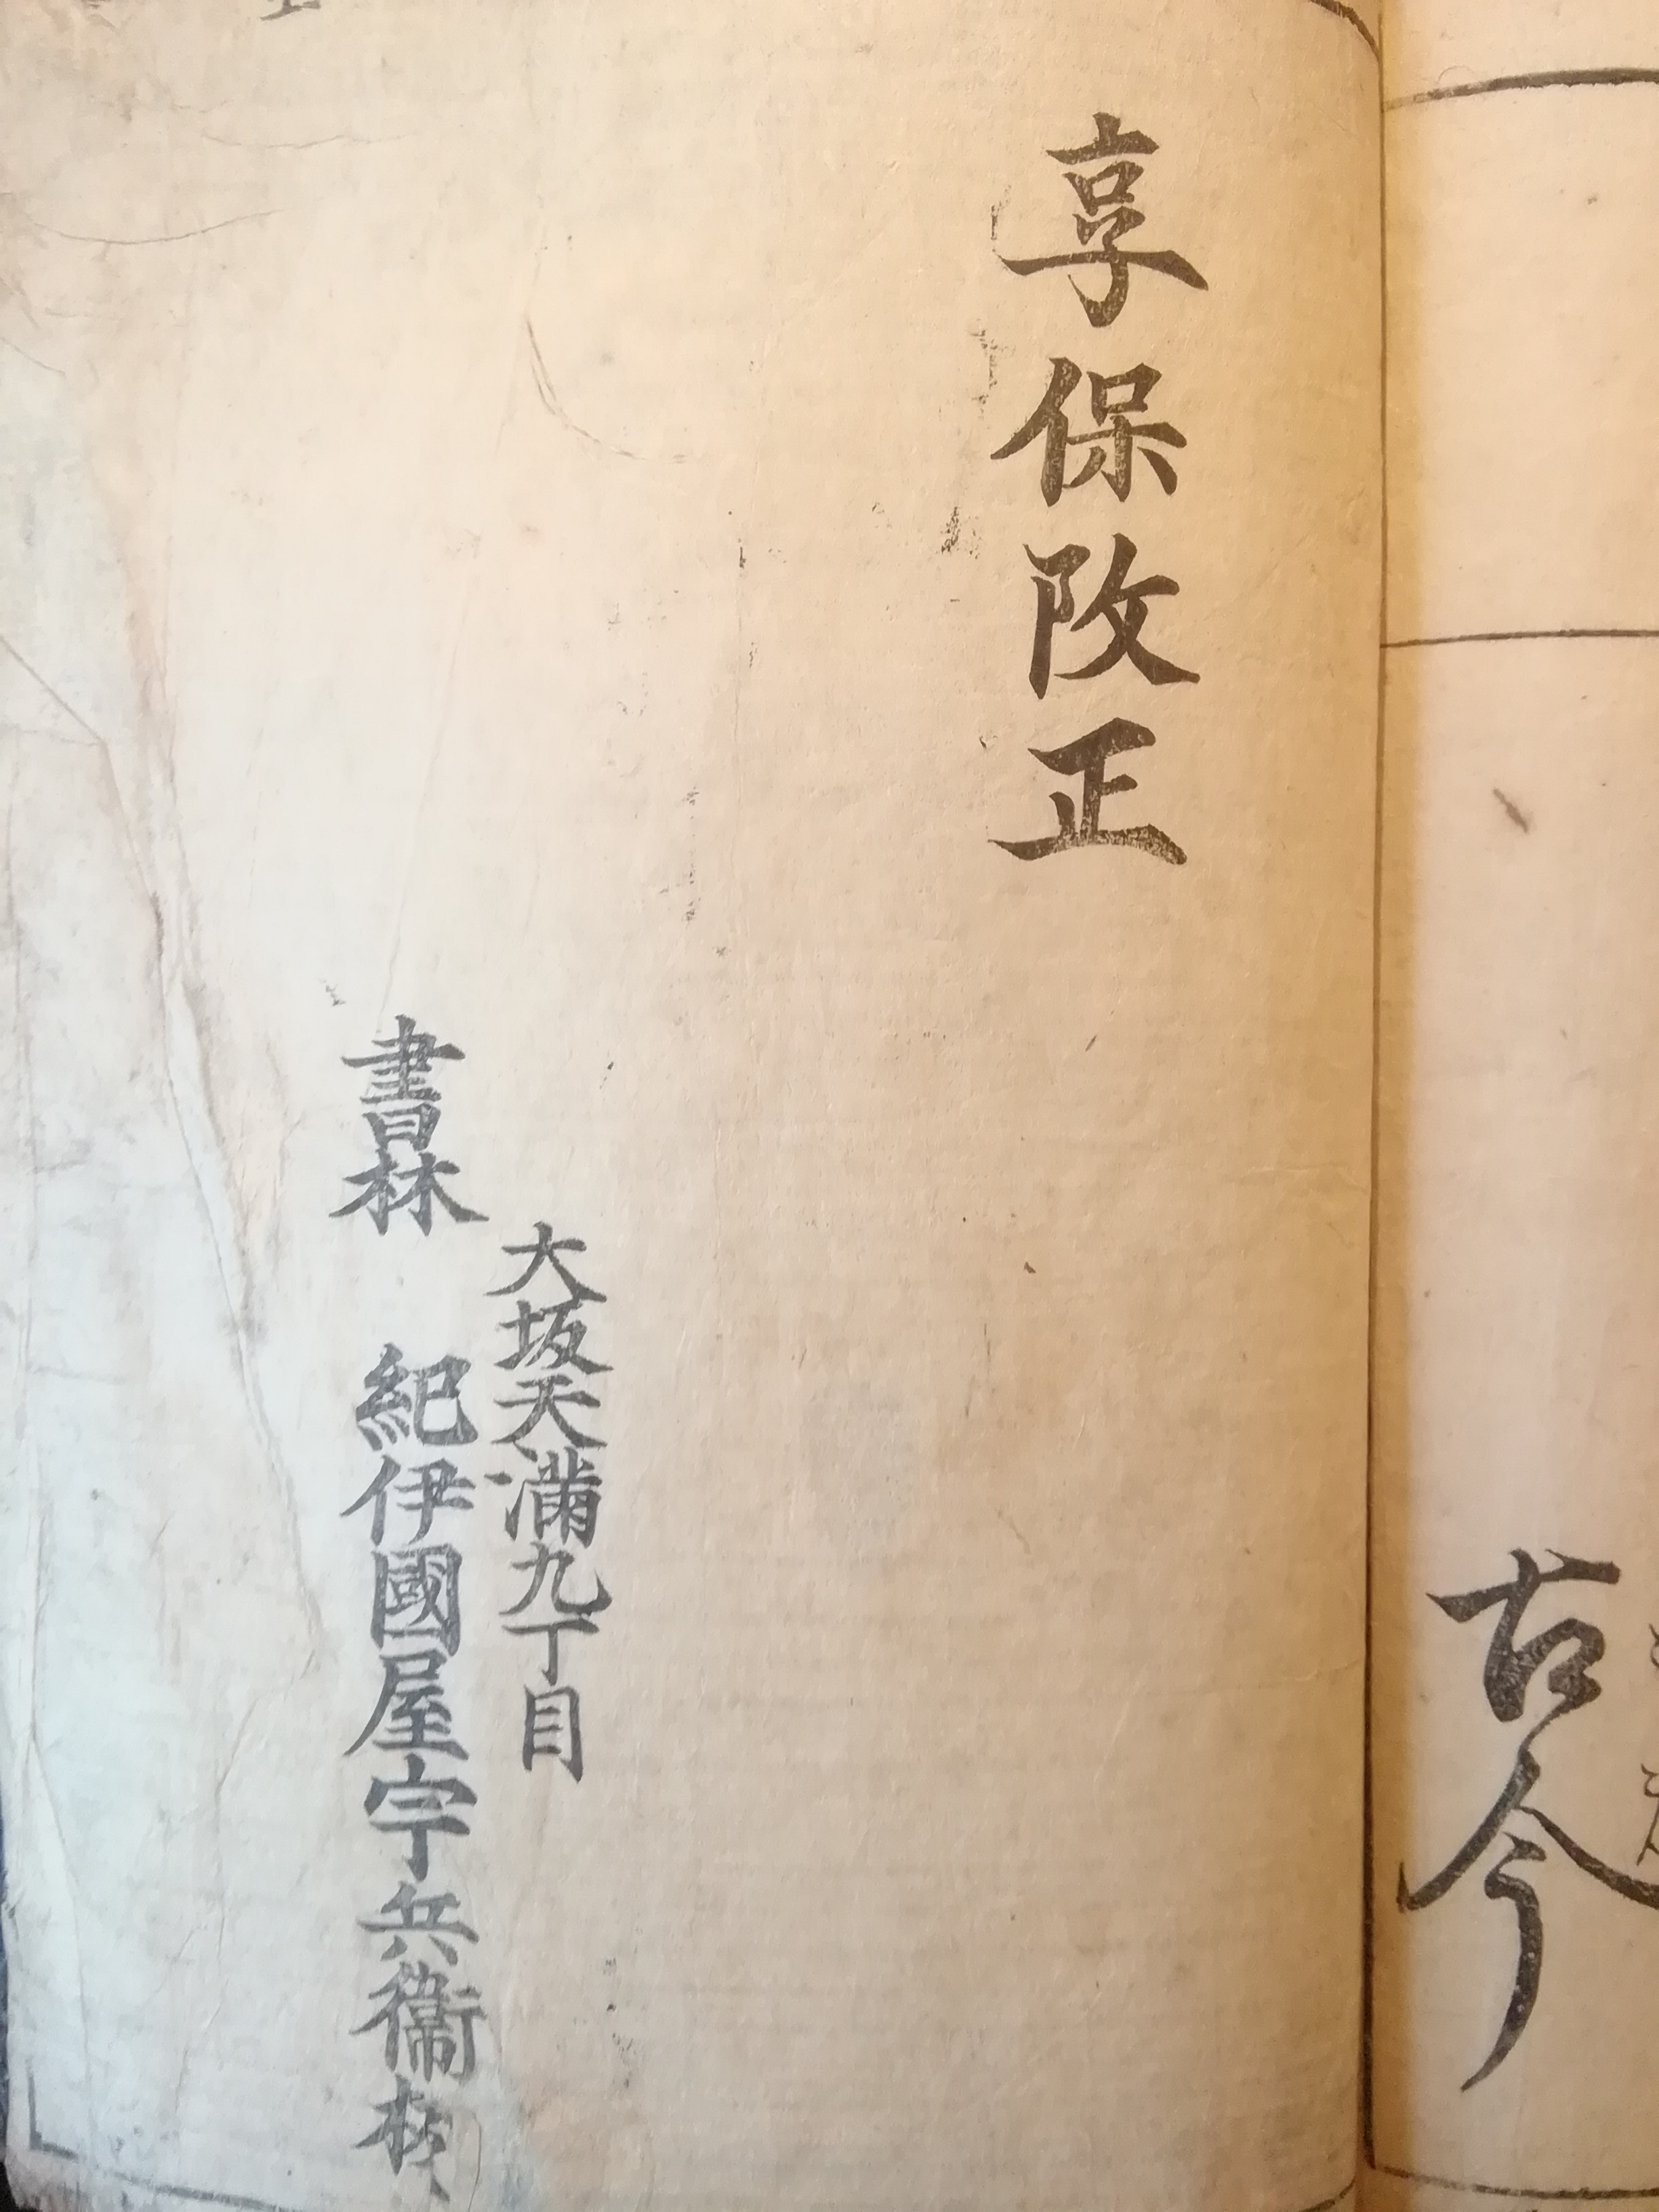 古今
享保改正
大坂天滿九丁目
書林 紀伊國屋宇兵衛板